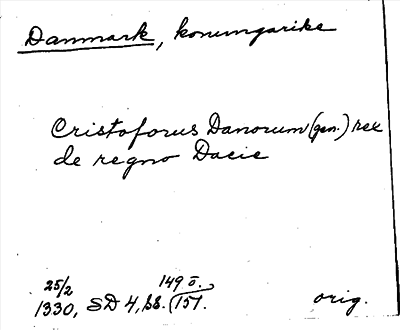 Danmark, konungarike
Cristoforus Danorum (gen.) rex
de regno Dacie
25/2 149 ö.,
1330, SD 4, bl. (151.
orig.